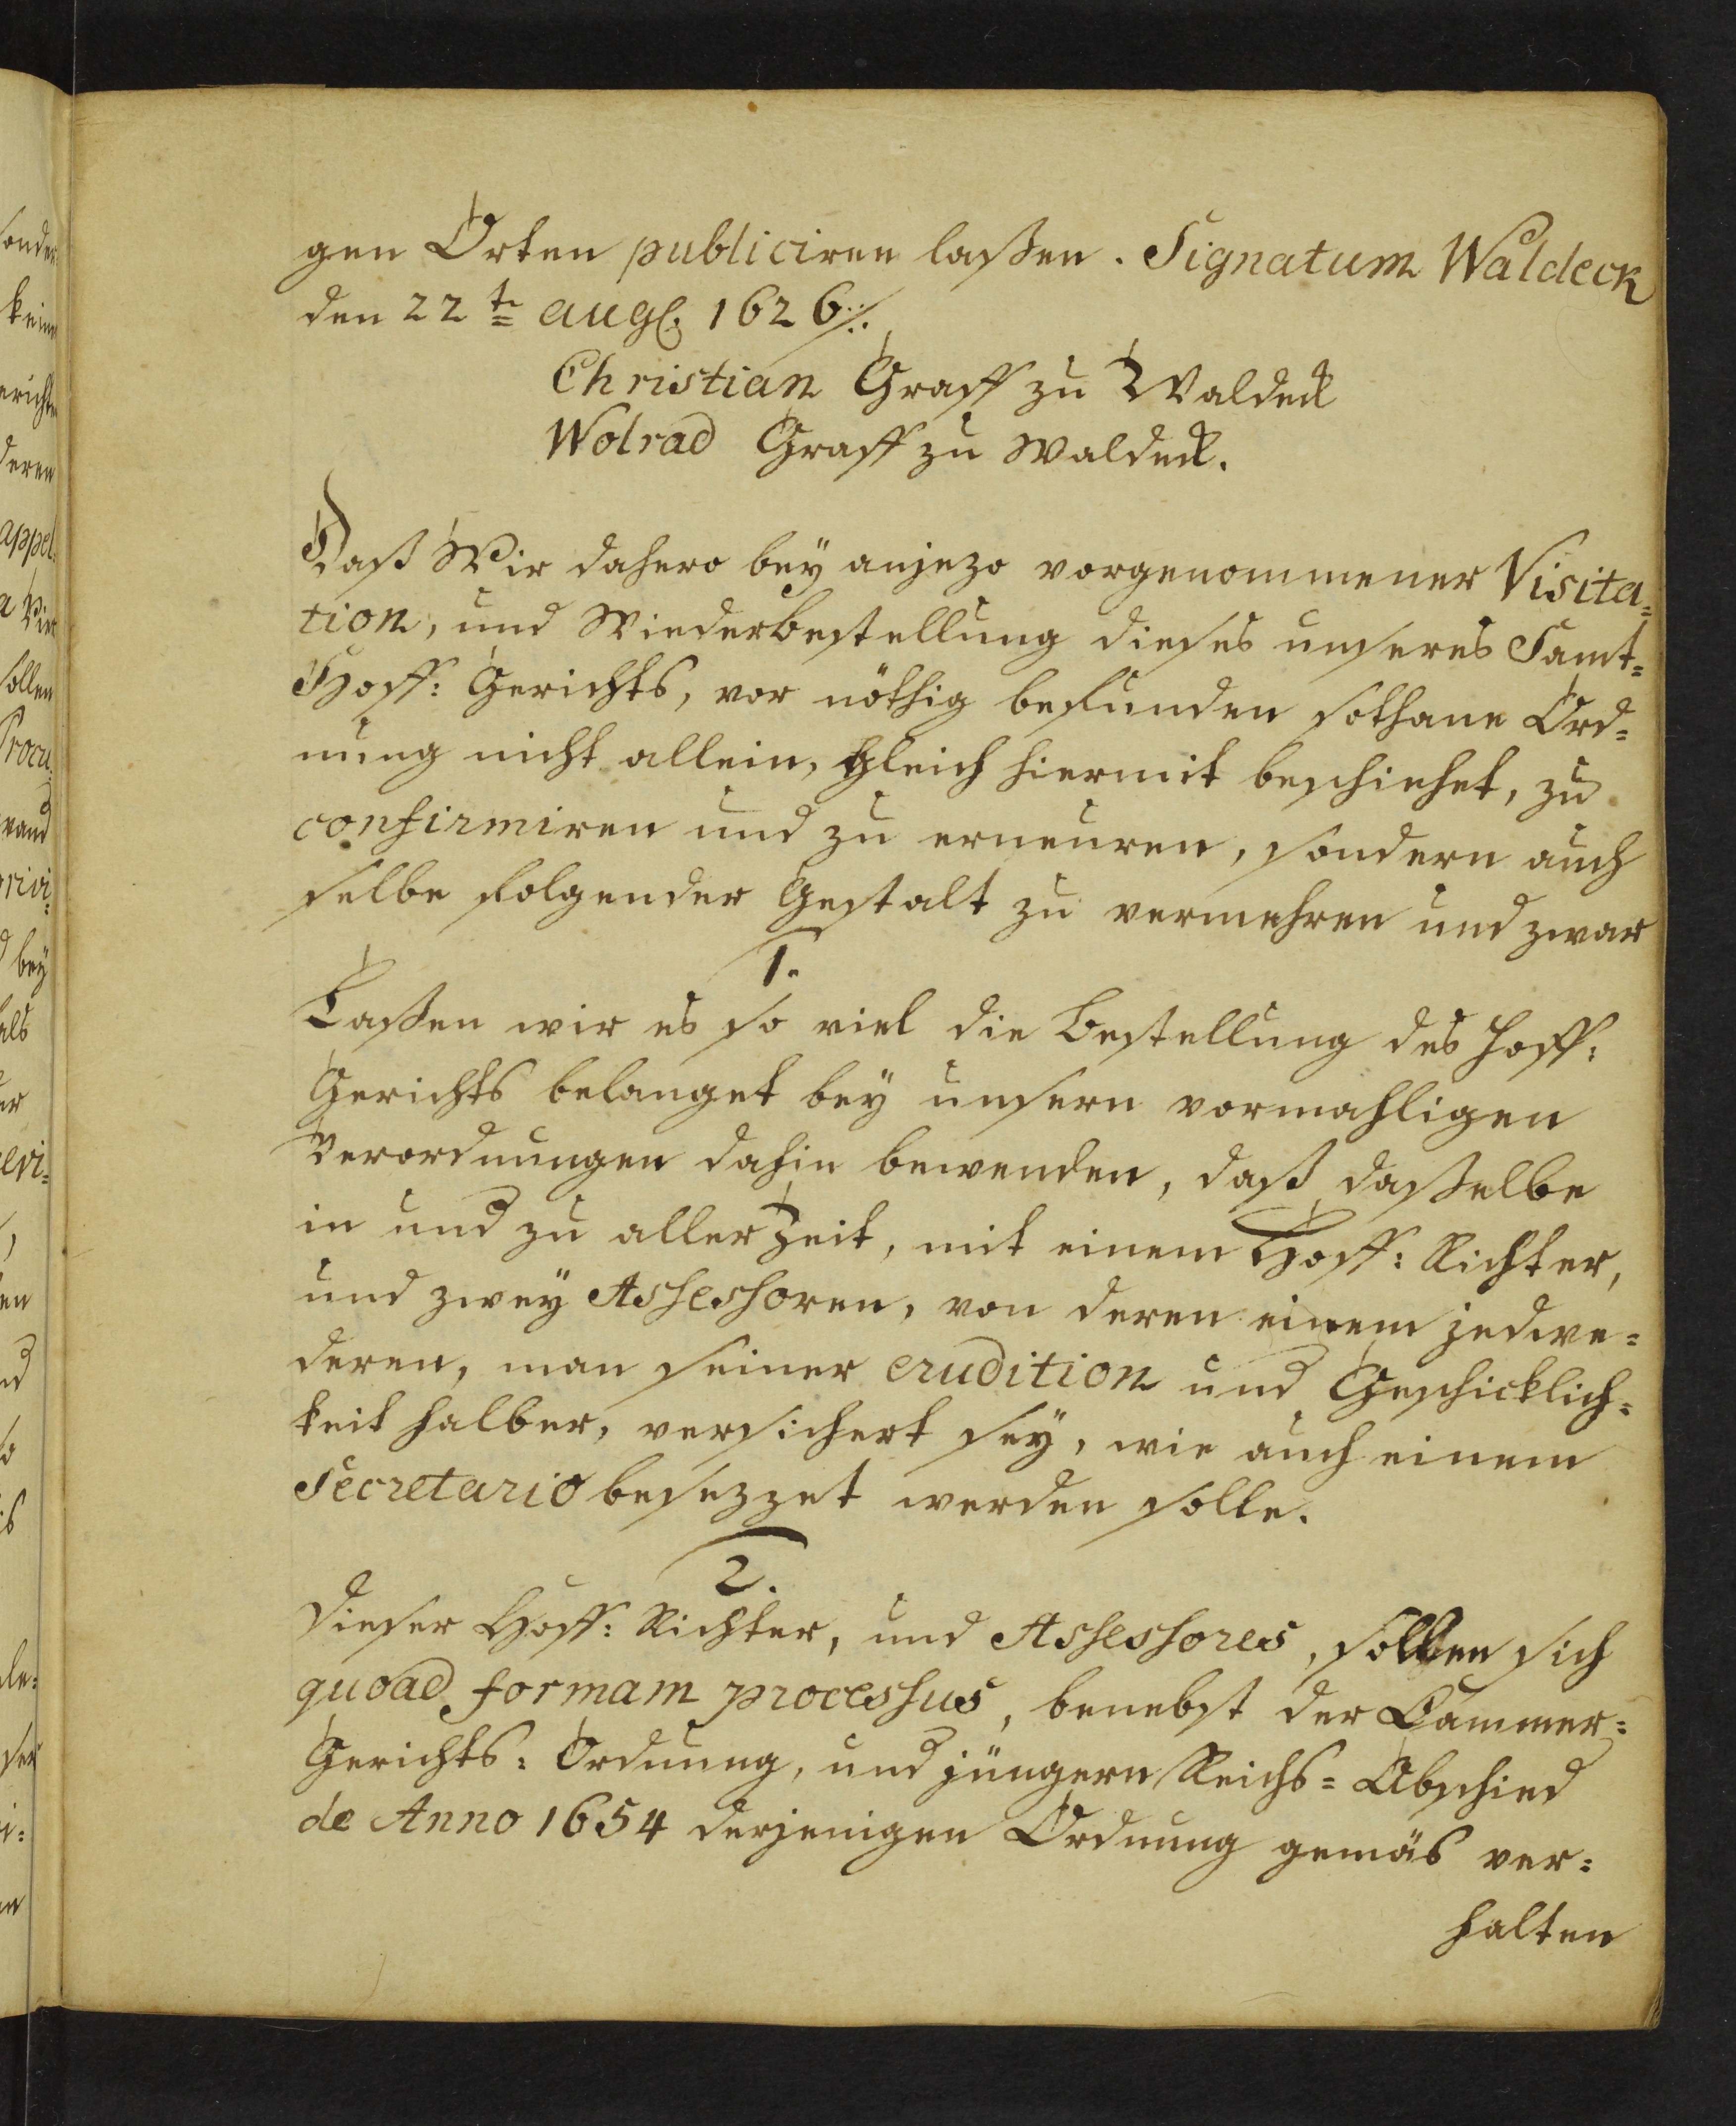 gen Orten publiciren laßen. Signatum Waldeck
den 22te augs. 1626 ./.
Christian Graff zu Waldeck
Wolrad Graff zu Waldeck.
Daß Wir dahero bey anjezo vorgenommener Visita=
tion, und Wiederbestellung dieses unseres Samt=
Hoff: Gerichts, vor nöthig befunden sothane Ord=
nung nicht allein, gleich hiermit beschiehet, zu
confirmiren und zu erneuren, sondern auch
selbe folgender Gestalt zu vermehren und zwar
1.
Laßen wir es so viel die Bestellung des Hoff:
Gerichts belanget bey unsern vormahligen
Verordnungen dahin bewenden, daß daßelbe
in und zu aller Zeit, mit einem Hoff: Richter,
und zwey Assessoren, von deren einem jedwe=
deren, man seiner erudition und Geschicklich=
keit halber, versichert sey, wie auch einem
Secretario besezzet werden solle.
2.
Dieser Hoff: Richter, und Assessores, sollen sich
quoad formam processus, benebst der Cammer=
Gerichts: Ordnung, und jüngern Reichs= Abschied
de Anno 1654 derjenigen Ordnung gemäs ver=
halten